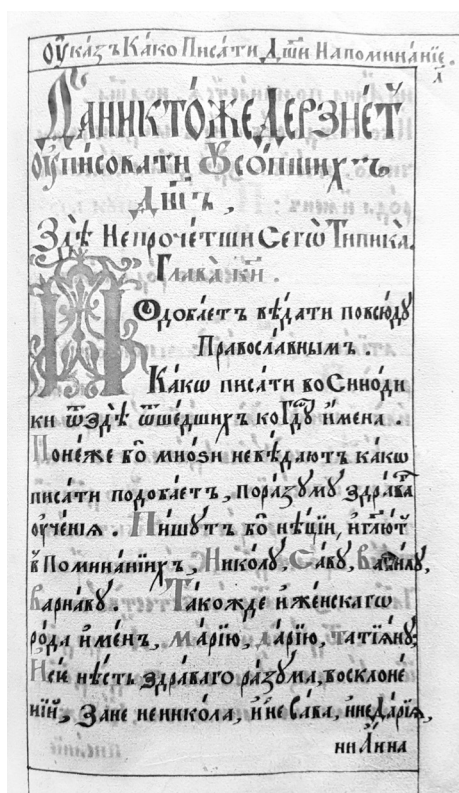 Оу҆ка́зъ Ка́ко Писа́ти Дш҃и На Помина́нїе.
а҃
Да никто́же Дерзне́тъ
оу҆пи́совати Оу҆со́пшихъ
Дш҃ъ,
Здѣ̀ Непроче́тши Сегѡ̀ Ти́пика̀.
Глава̀ к҃и.
Подоба́етъ вѣ́дати повсю́дꙋ
Правосла́внымъ.
Ка́кѡ писа́ти во Сино́ди
ки ѿздѣ̀ ѿше́дшихъ ко Гдⷭ҇ꙋ и҆мена̀.
Поне́же бо̀ мно́зи не вѣ́даютъ ка́кѡ
писа́ти подоба́етъ, по ра́зꙋмꙋ здра́ва
оу҆че́нїѧ. Пи́шꙋтъ бо̀ нѣ́цїи, и҆ глю́тъ
в̾ Помина́нїихъ, Нико́лꙋ, Са́вꙋ, Васи́лꙋ,
Варна́вꙋ. Та́кожде и҆ же́нскагѡ
ро́да и҆ме́нъ, Ма́рїю, Да́рїю, Татїѧ́нꙋ;
И҆ сѐ нѣ́сть здра́ваго ра́зꙋма, во склоне́
нїй, За́не не никола, и҆ не Сава, и҆ не Да́рїѧ,
ни А҆́нна